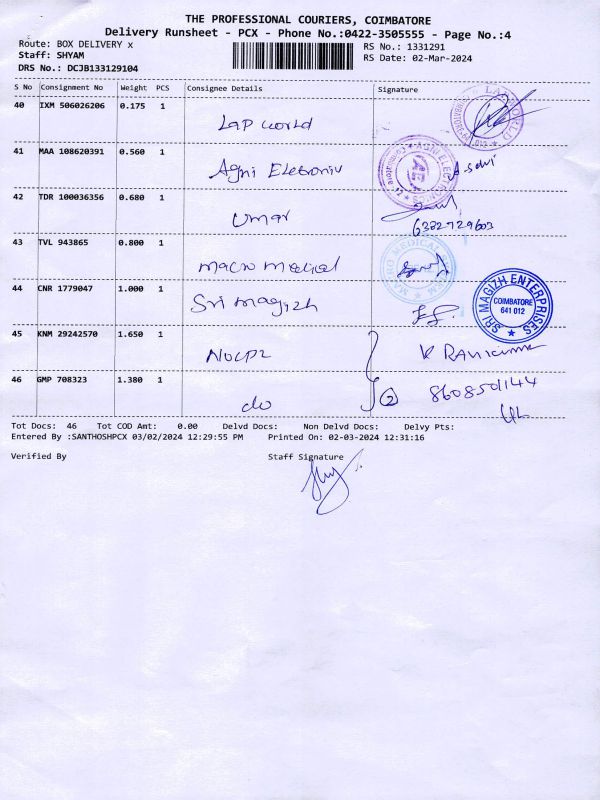 THE PROFESSIONAL COURIERS, COIMBATORE
Delivery Runsheet - PCX - Phone No.:0422-3505555 - Page No.:4
Route: BOX DELIVERY x
RS No.: 1331291
Staff: SHYAM
RS Date: 02-Mar-2024
DRS No.: DCJB133129104
S No Consignment No Weight PCS Consignee Details Signature
40 IXM 506026206 0.175 1
Lap world
LAP WORLD
41 MAA 108620391 0.560 1
Agni Eletroniv
AGNI ELECTRONICS
42 TDR 100036356 0.680 1
Umar
6382729603
43 TVL 943865 0.800 1
macro medical
MACRO MEDICAL
44 CNR 1779047 1.000 1
Sri magizh
SRI MAGIZH ENTERPRISES
COIMBATORE
641 012
45 KNM 29242570 1.650 1
K Ravikumar
46 GMP 708323 1.380 1
do
2
8608501144
Tot Docs: 46 Tot COD Amt: 0.00 Delvd Docs: Non Delvd Docs: Delvy Pts:
Entered By :SANTHOSHPCX 03/02/2024 12:29:55 PM Printed On: 02-03-2024 12:31:16
Verified By Staff Signature